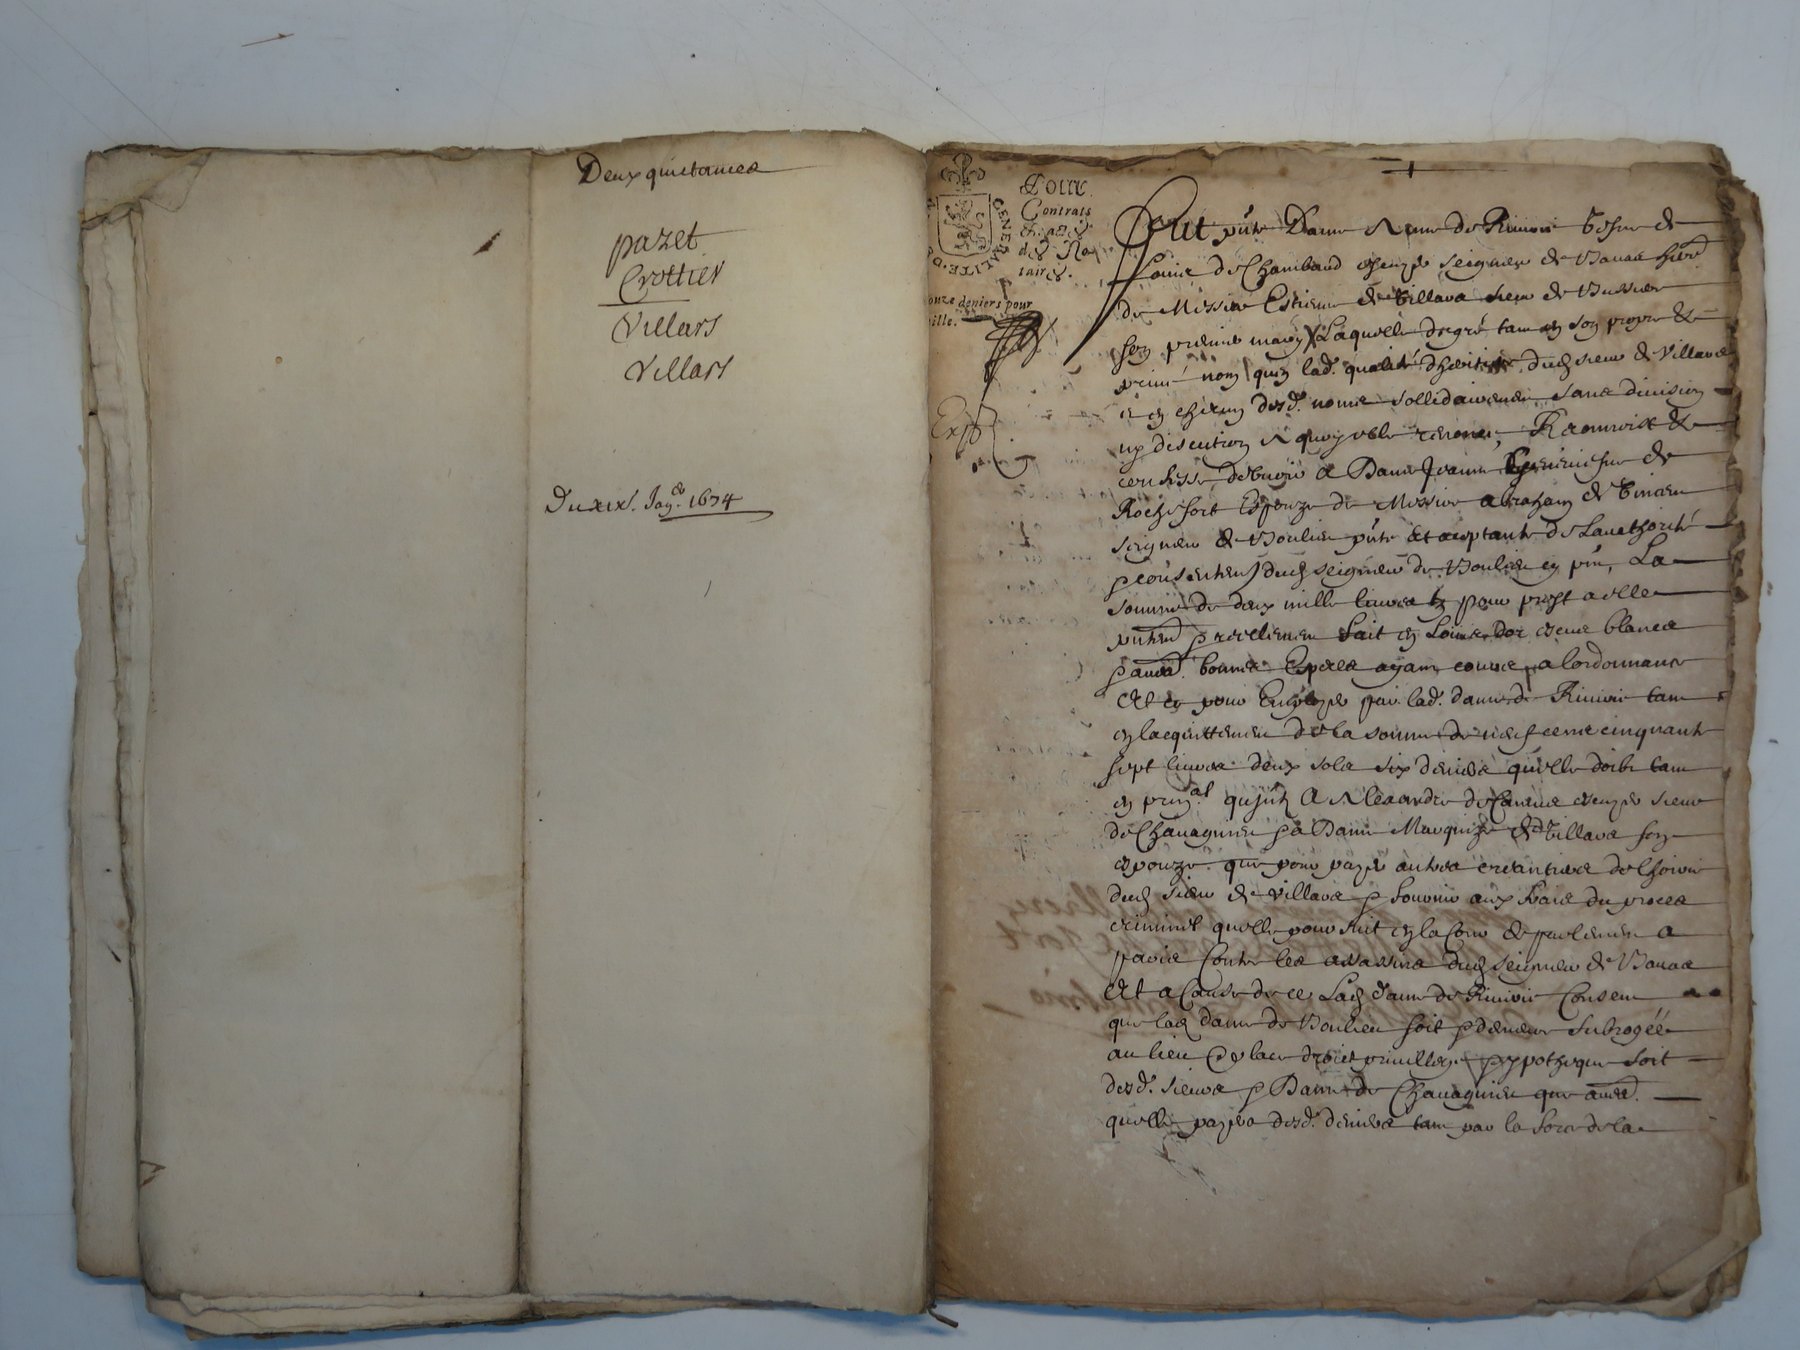 Deux quictances
pazet
Crottier
Villars
Villars
Du xix. Jan.er 1674
GENERALITE D
Pour
Contrats
& actes
des No
taires.
onze deniers pour
ille.
Exp
Fut pnte Dame Anne de Rivoire vefve de
Louis de Chambaud escuyer seigneur de Bavas
de Messire Estienne de Villars sieur de
son premier mary Laquelle de gré tant en son propre &
privé nom qu'en lad. qualité d'heritiere dud sieur de Villars
& en chascun desd. noms sollidairement sans division
ny discution a quoy elle renonce, Recognoist &
confesse debvoir a Dame Jeanne de
Rochefort Espouze de Messire abraham de
seigneur de Boulieu pnte Et acceptante de Lauthorité
& consentement dud seigneur de Boulieu en pnt, La
somme de deux mille livres pour prest a elle
fait en Louis dor escus blancs
& aues. bonnes Especes ayant cours a lordonnance
Et pour Employer par lad. dame de Rivoire tant
en lacquittement de la somme de neuf cents cinquante
sept livres deux sols six deniers qu'elle doibt tant
en prin.al qu'jnt A Alexandre de escuyer sieur
de Chavagnieu & a Dame Marquize de Villars son
espouze que pour payer autres creantiers de lhoirie
dud sieur de Villars & fournir aux frais du proces
criminel quelle poursuit en la Cour de parlement a
paris Contre les assassins dud seigneur de Bavas
Et a Cause de ce Lad dame de Rivoire Consent
que lad dame de Boulieu soit & demeure subrogéé
au lieu & place droict privillege & hypotheque soit
desd. sieurs & Dame de Chavagnieu que aues.
quelle payera desd. deniers tant par la force de la